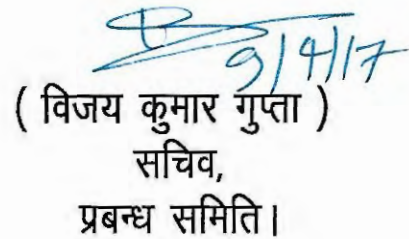 9/4/17
( विजय कुमार गुप्ता )
सचिव,
प्रबन्ध समिति।